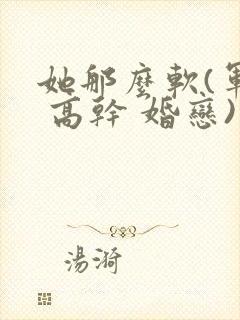 她那麼軟(軍
高幹 婚戀)
湯漪